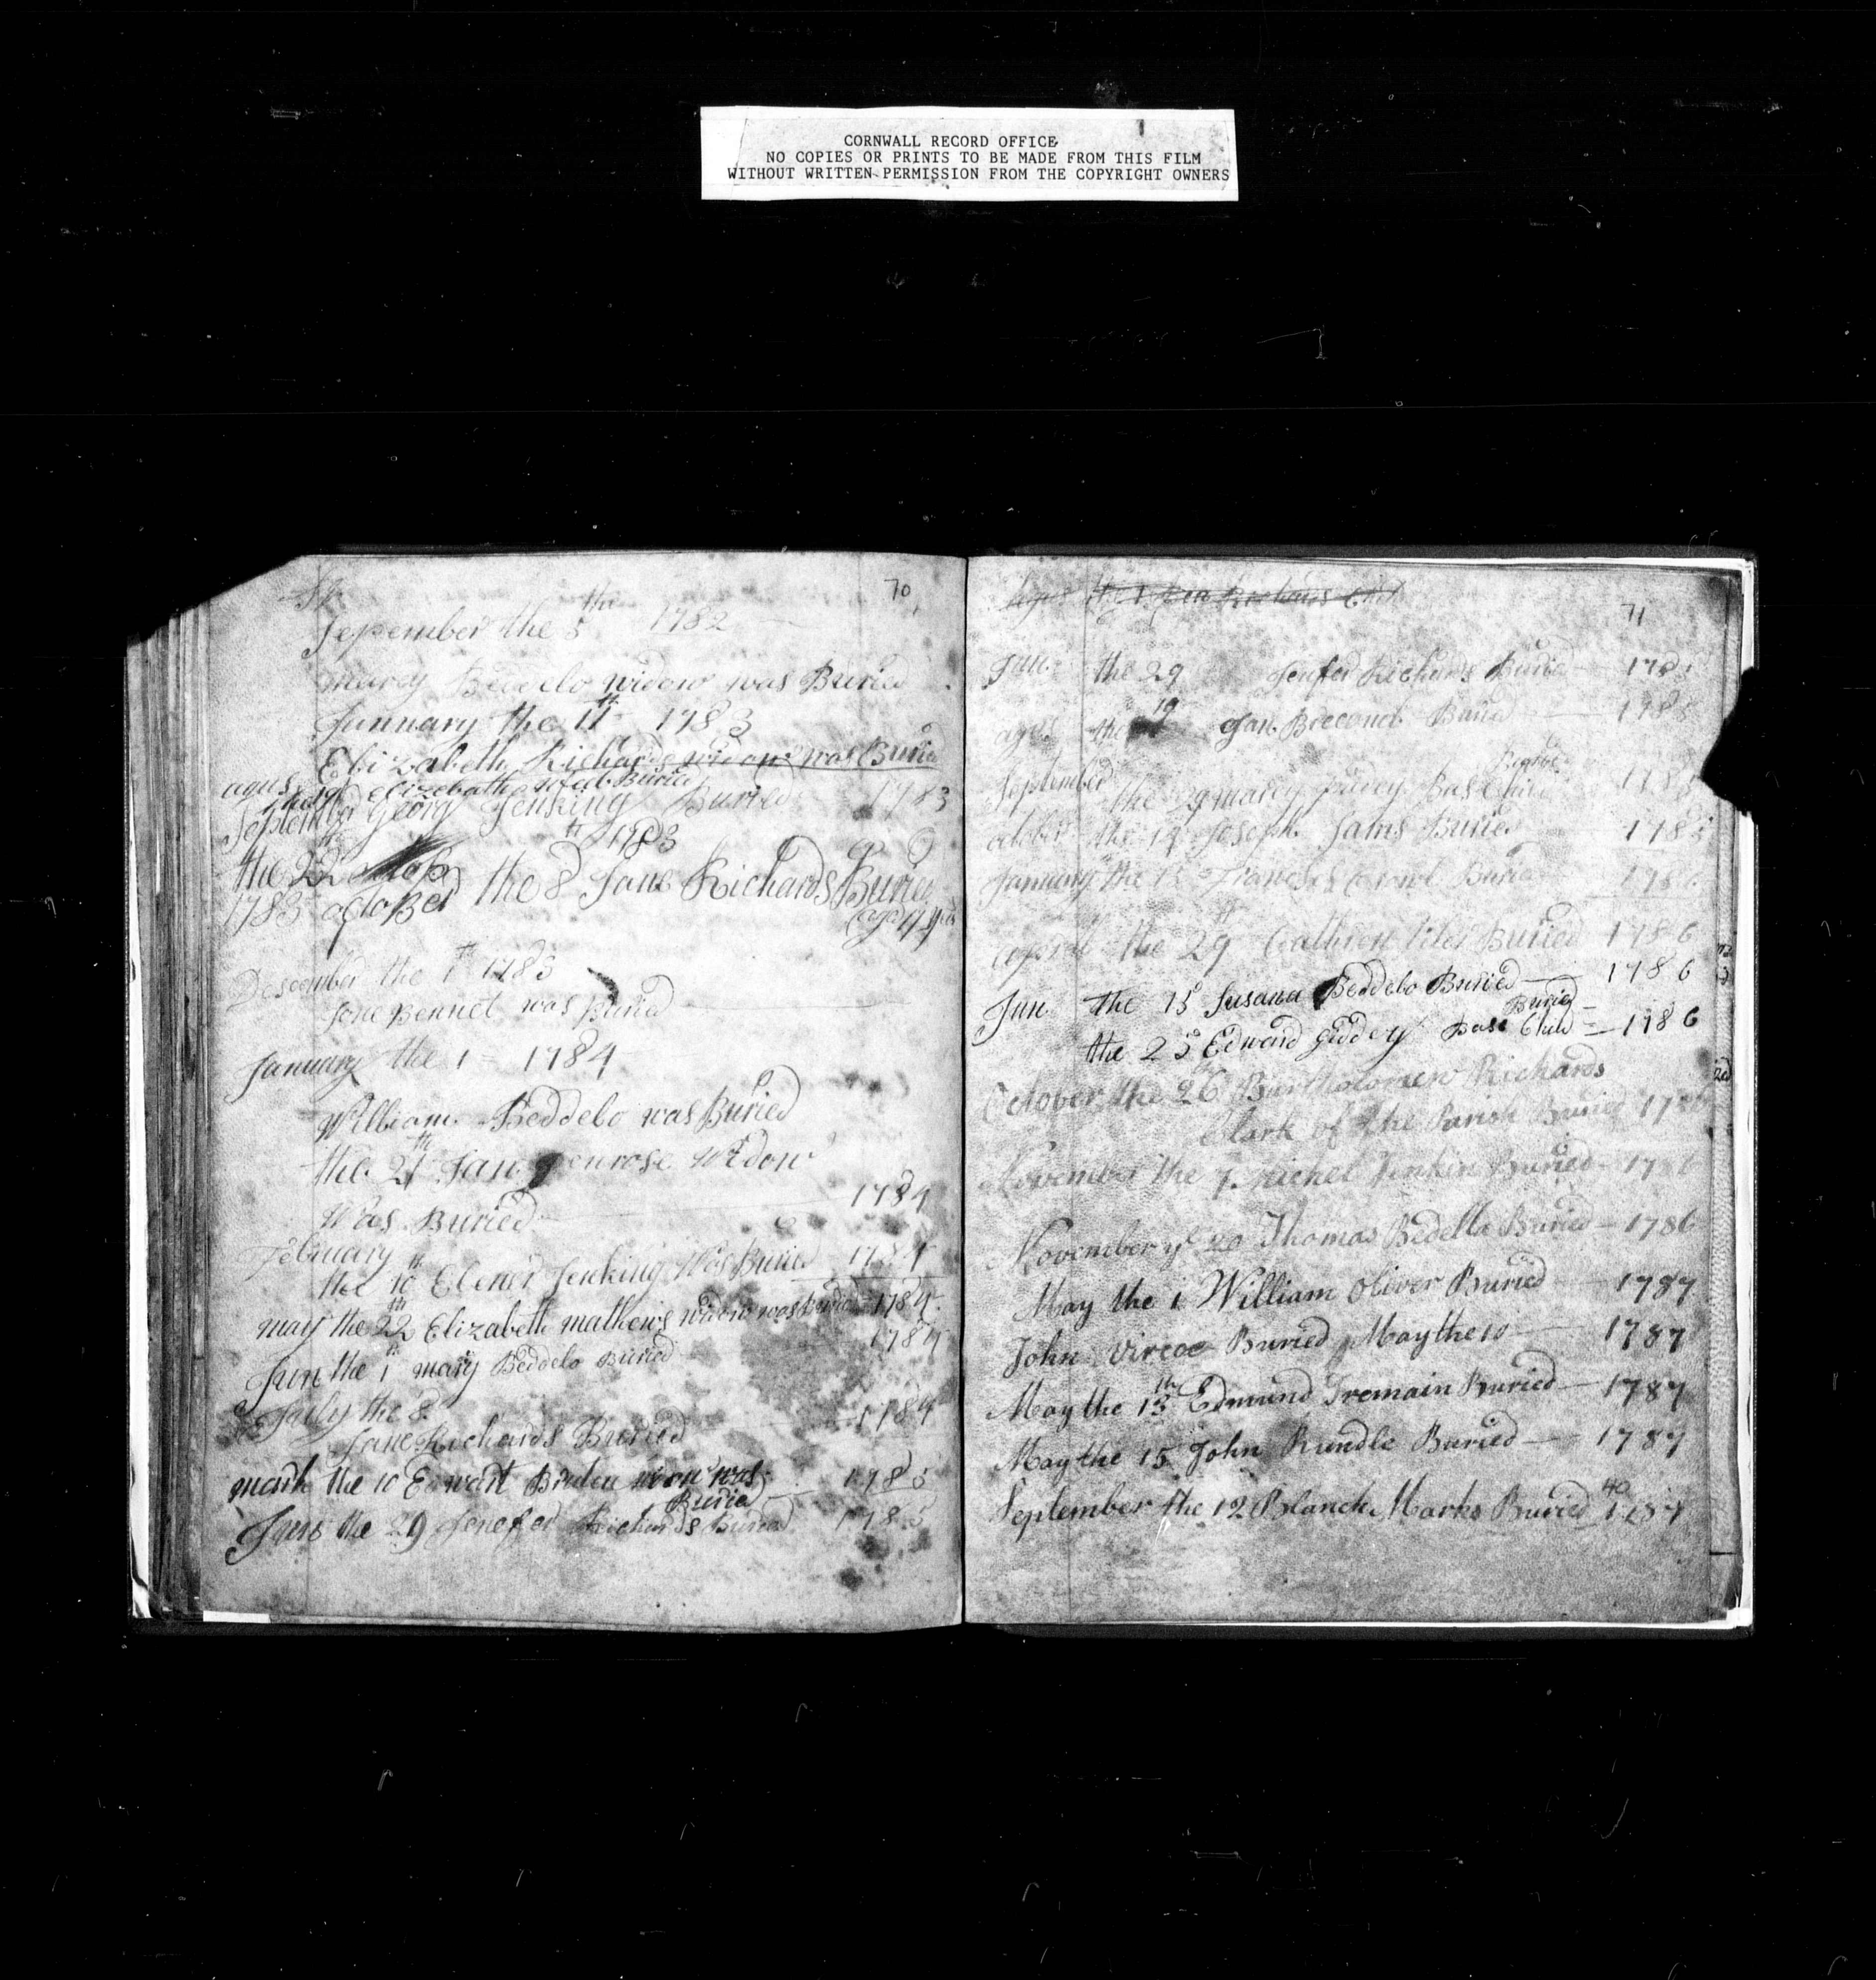 CORNWALL RECORD OFFICE
NO COPIES OR PRINTS TO BE MADE FROM THIS FILM
WITHOUT WRITTEN PERMISSION FROM THE COPYRIGHT OWNERS
70
September the 5th 1782
marey Beddelo widow was Buried
Junnary the 11th 1783
Elizabeth Richards widow was Buried
agus
elizebath Buried
September Georg Jenking Buried 1783
the 22 1783
1783 octoBer the 8th Jane Richards Buried
Descember the 1th 1783
Jone Bennet was Buried
January the 1 - 1784
William Beddelo was Buried
the 21th Jan penrose widow
was Buried 1784
February
the 10th Elener Jenking Was Buried 1784
may the 22th Elizabeth mathews widow was Buried 1784
Jun the 1th mary Beddelo Buried 1784
July the 8
Jane Richards Buried 1784
march the 10 widow was 1785
Buried
June the 29 Jenefer Richards Buried 1785
71
Jun the 29 Jenefer Richards Buried 1785
agus the 19 Jan Buried 1785
September the 9 marey Base Child 1785
octtber the 14 Joseph Jams Buried 1785
January the 15 Frances Buried 1786
aprel the 29 Buried 1786
Jun the 15 Susana Beddelo Buried 1786
Buried
the 25 Edward giddey Base Child 1786
October the 26 Bartholomew Richards
Clark of the Parish Buried 1786
November the 7 Jenkin Buried 1786
November ye 20 Thomas Bedella Buried 1786
May the 1 William Oliver Buried 1787
John Vircoe Buried May the 10 1787
May the 13th Edmund Tremain Buried 1787
May the 15 John Rundle Buried 1787
September the 12 Blanch Marks Buried 1787
40